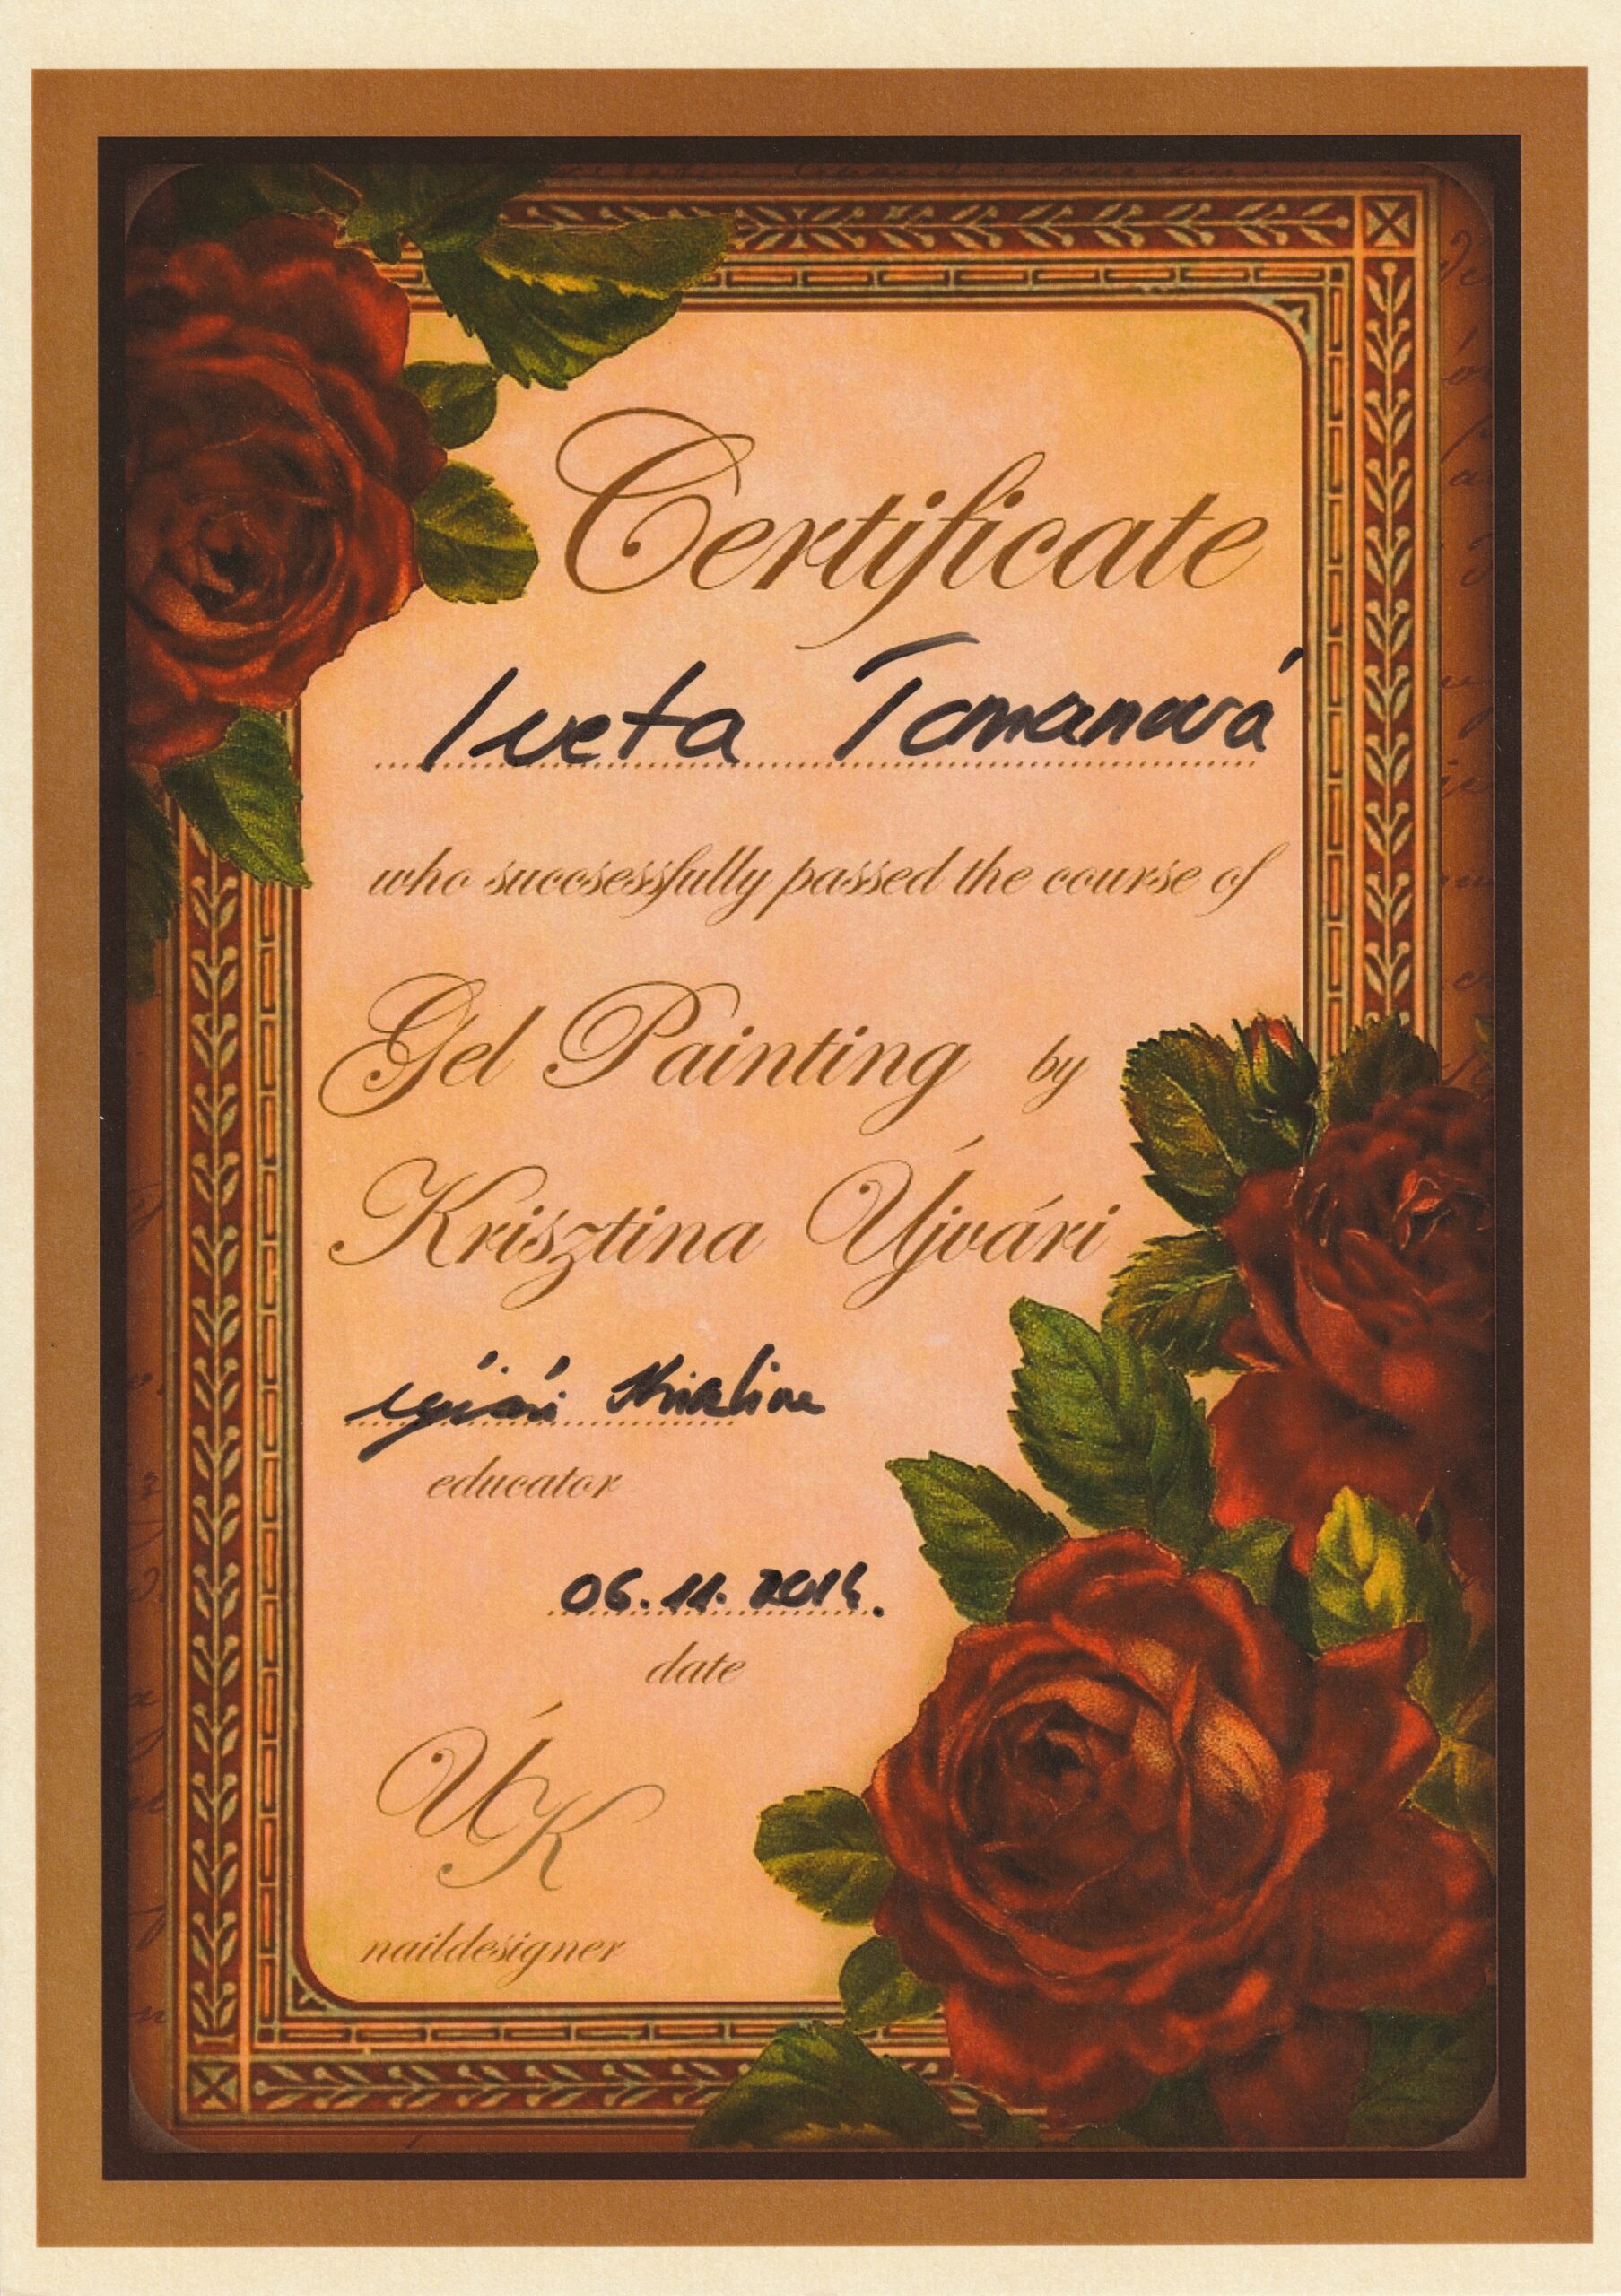 Certificate
Iveta Tomanová
who succsessfully passed the course of
Gel Painting by
Krisztina Újvári
Újvári Krisztina
educator
06.11.2014.
date
ÚK
naildesigner